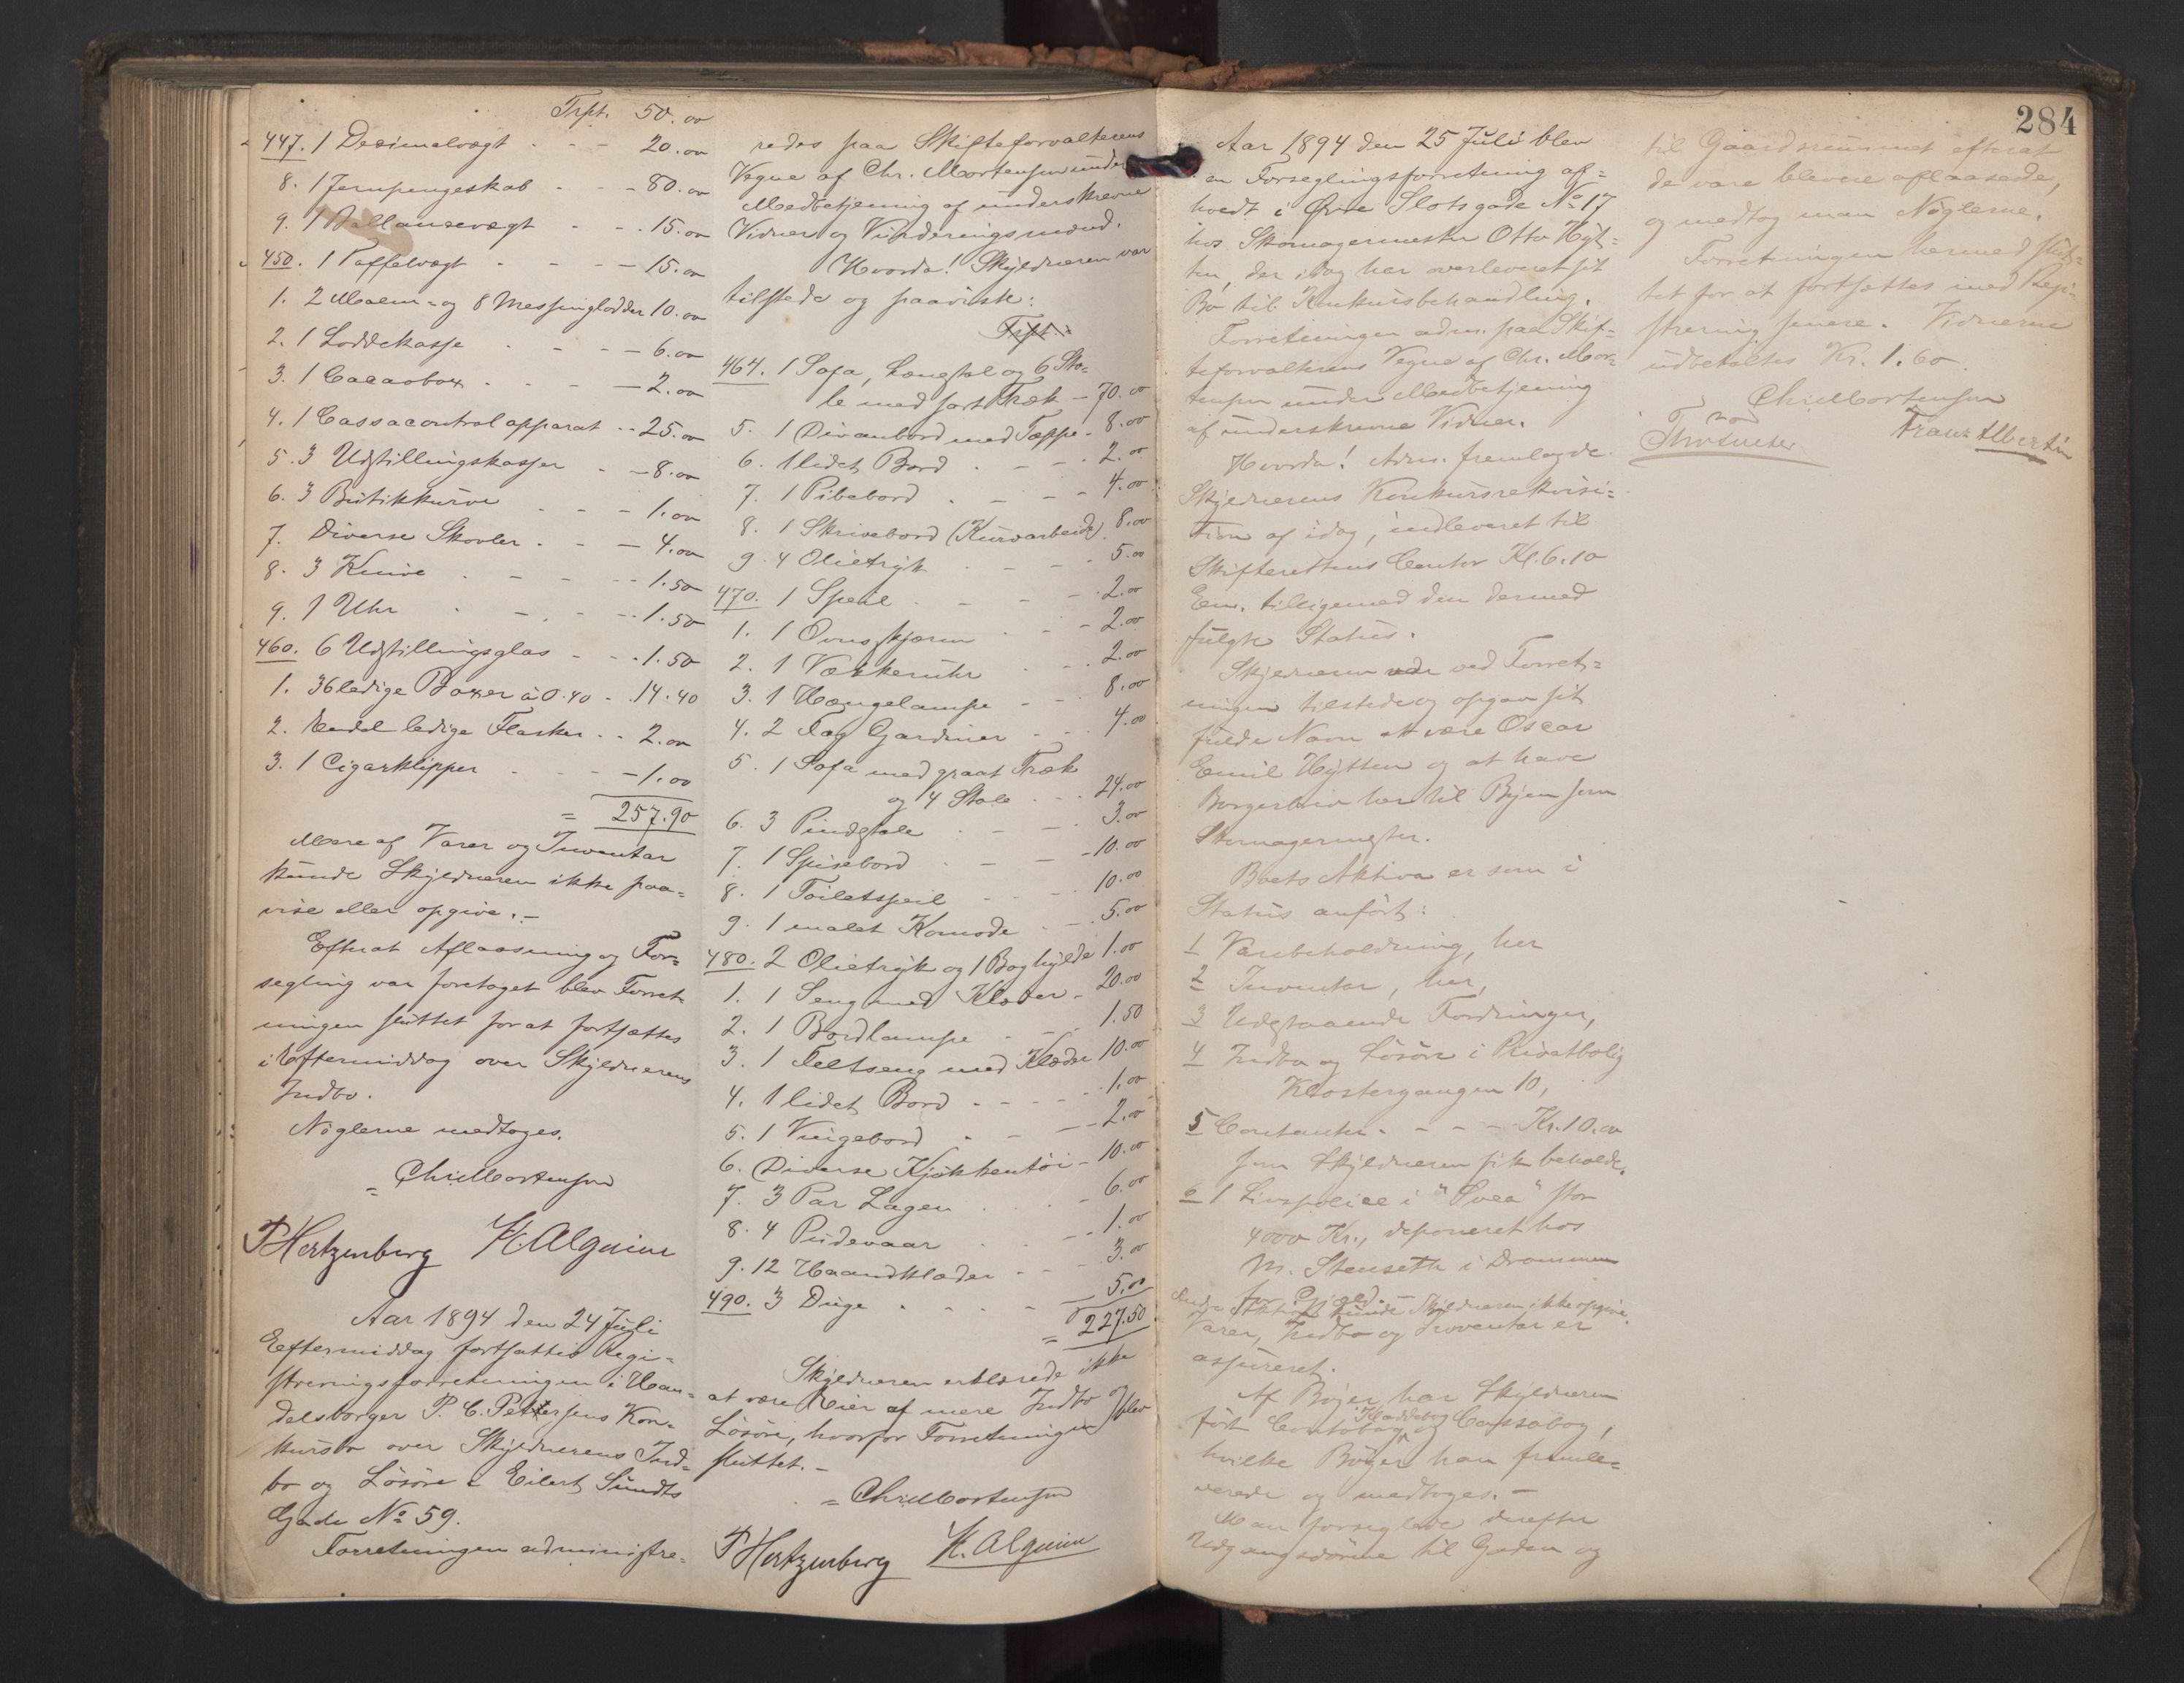 Trspt. 50.00
447. 1 Desimalvægt - - 20.00
8. 1 Jernpengeskab - - - 80.00
9. 1 Ballancevægt - - - 15.00
450. 1 Taffelvægt - - - 15.00
1. 2 Malm- og 8 Messinglodder 10.00
2. 1 Loddekasse - - - 6.00
3. 1 Cacaobox - - - 2.00
4. 1 Cassacontrolapparat - - 25.00
5. 3 Udstillingskasser - - 8.00
6. 3 Butikkurve - - - 1.00
7. Diverse Skovler - - - 4.00
8. 3 Knive - - - 1.50
9. 1 Uhr - - - 1.50
460. 6 Udstillingsglas - - - 1.50
1. 36 ledige Boxer à 0.40 - - 14.40
2. Endel ledige Flasker - - 2.00
3. 1 Cigarklipper - - - 1.00
= 257.90
Mere af Varer og Inventar
kunde Skyldneren ikke paa=
vise eller opgive. -
Efterat Aflaasning og For=
segling var foretaget blev Forret-
ningen sluttet for at fortsættes
i Eftermiddag over Skyldnerens
Indbo.
Nøglerne medtoges.
= Chr. Mortensen
P Hertzenberg H. Alguim
Aar 1894 den 24 Juli
Eftermiddag fortsattes Regi=
streringsforretningen i Han=
delsborger P. C. Pettersens Kon=
kursbo over Skyldnerens Ind=
bo og Løsøre i Eilert Sundts
Gade No 59.
Forretningen administre=
redes paa Skifteforvalterens
Vegne af Chr. Mortensen under
Medbetjening af underskrevne
Vidner og Vurderingsmænd.
Hvorda! Skyldneren var
tilstede og paaviste:
Trspt:
464. 1 Sofa, Lænestol og 6 Sto=
le med sort Træk - 70.00
5. 1 Divanbord med Tæppe - 8.00
6. 1 lidet Bord - - - 2.00
7. 1 Pibebord - - - 4.00
8. 1 Skrivebord (Kurvarbeide) 8.00
9. 4 Olietryk - - - 5.00
470. 1 Speil - - - 2.00
1. 1 Ovnsskjærm - - - 2.00
2. 1 Vækkeruhr - - - 2.00
3. 1 Hængelampe - - - 8.00
4. 2 Fag Gardiner - - - 4.00
5. 1 Sofa med graat Træk
og 4 Stole - - - 24.00
6. 3 Pindestole - - - 3.00
7. 1 Spisebord - - - 10.00
8. 1 Toiletspeil - - 10.00
9. 1 malet Komode - - 5.00
480. 2 Olietryk og 1 Boghylde 1.00
1. 1 Seng med Klæder - 20.00
2. 1 Bordlampe - - - 1.50
3. 1 Feltseng med Klæder 10.00
4. 1 lidet Bord - - - - 1.00
5. 1 Vingebord - - - 2.00
6. Diverse Kjøkkentøi - 10.00
7. 3 Par Lagen - - - 6.00
8. 4 Pudevaar - - - 1.00
9. 12 Haandklæder - - - 3.00
490. 3 Duge - - - 5.00
= 227.50
Skyldneren erklærede ikke
at være Eier af mere Indbo og
Løsøre, hvorfor Forretningen blev
sluttet. -
= Chr. Mortensen
P Hertzenberg H. Alguim
284
Aar 1894 den 25 Juli blev
en Forseglingsforretning af=
holdt i Øvre Slotsgade No 17
hos Skomagermester Otto Hyt=
ten, der idag har overleveret sit
Bo til Konkursbehandling.
Forretningen adm. paa Skif=
teforvalterens Vegne af Chr. Mor=
tensen under Medbetjening
af underskrevne Vidner.
Hvorda! Adm. fremlagde
Skyldnerens Konkursrekvisi=
tion af idag, indleveret til
Skifterettens Contor Kl. 6.10
Em. tilligemed den dermed
fulgte Status.
Skyldneren var ved Forret=
ningen tilstede og opgav sit
fulde Navn at være Oscar
Emil Hytten og at have
Borgerbrev her til Byen som
Skomagermester.
Boets Aktiva er som i
Status anført:
1 Varebeholdning, her
2 Inventar, her,
3 Udestaaende Fordringer,
4 Indbo og Løsøre i Privatbolig
Klostergangen 10,
5 Contanter - - - Kr. 10.00
som Skyldneren fik beholde.
6 1 Livspolice i "Svea" stor
4000 Kr., deponeret hos
M. Stenseth i Drammen
for Gjæld. -
Andre Aktiva kunde Skyldneren ikke opgive.
Varer, Indbo og Inventar er
assureret.
Af Bøger har Skyldneren
ført Contobog, Kladdebog og Cassabog,
hvilke Bøger han fremle=
verede og medtoges. -
Man forseglede derefter
Udgangsdørene til Gaden og
til Gaardsrummet efterat
de vare blevne aflaasede,
og medtog man Nøglerne.
Forretningen hermed slut=
tet for at fortsættes med Regi=
strering senere. Vidnerne
udbetaltes Kr. 1.60.
Chr. Mortensen
Franz Albertin